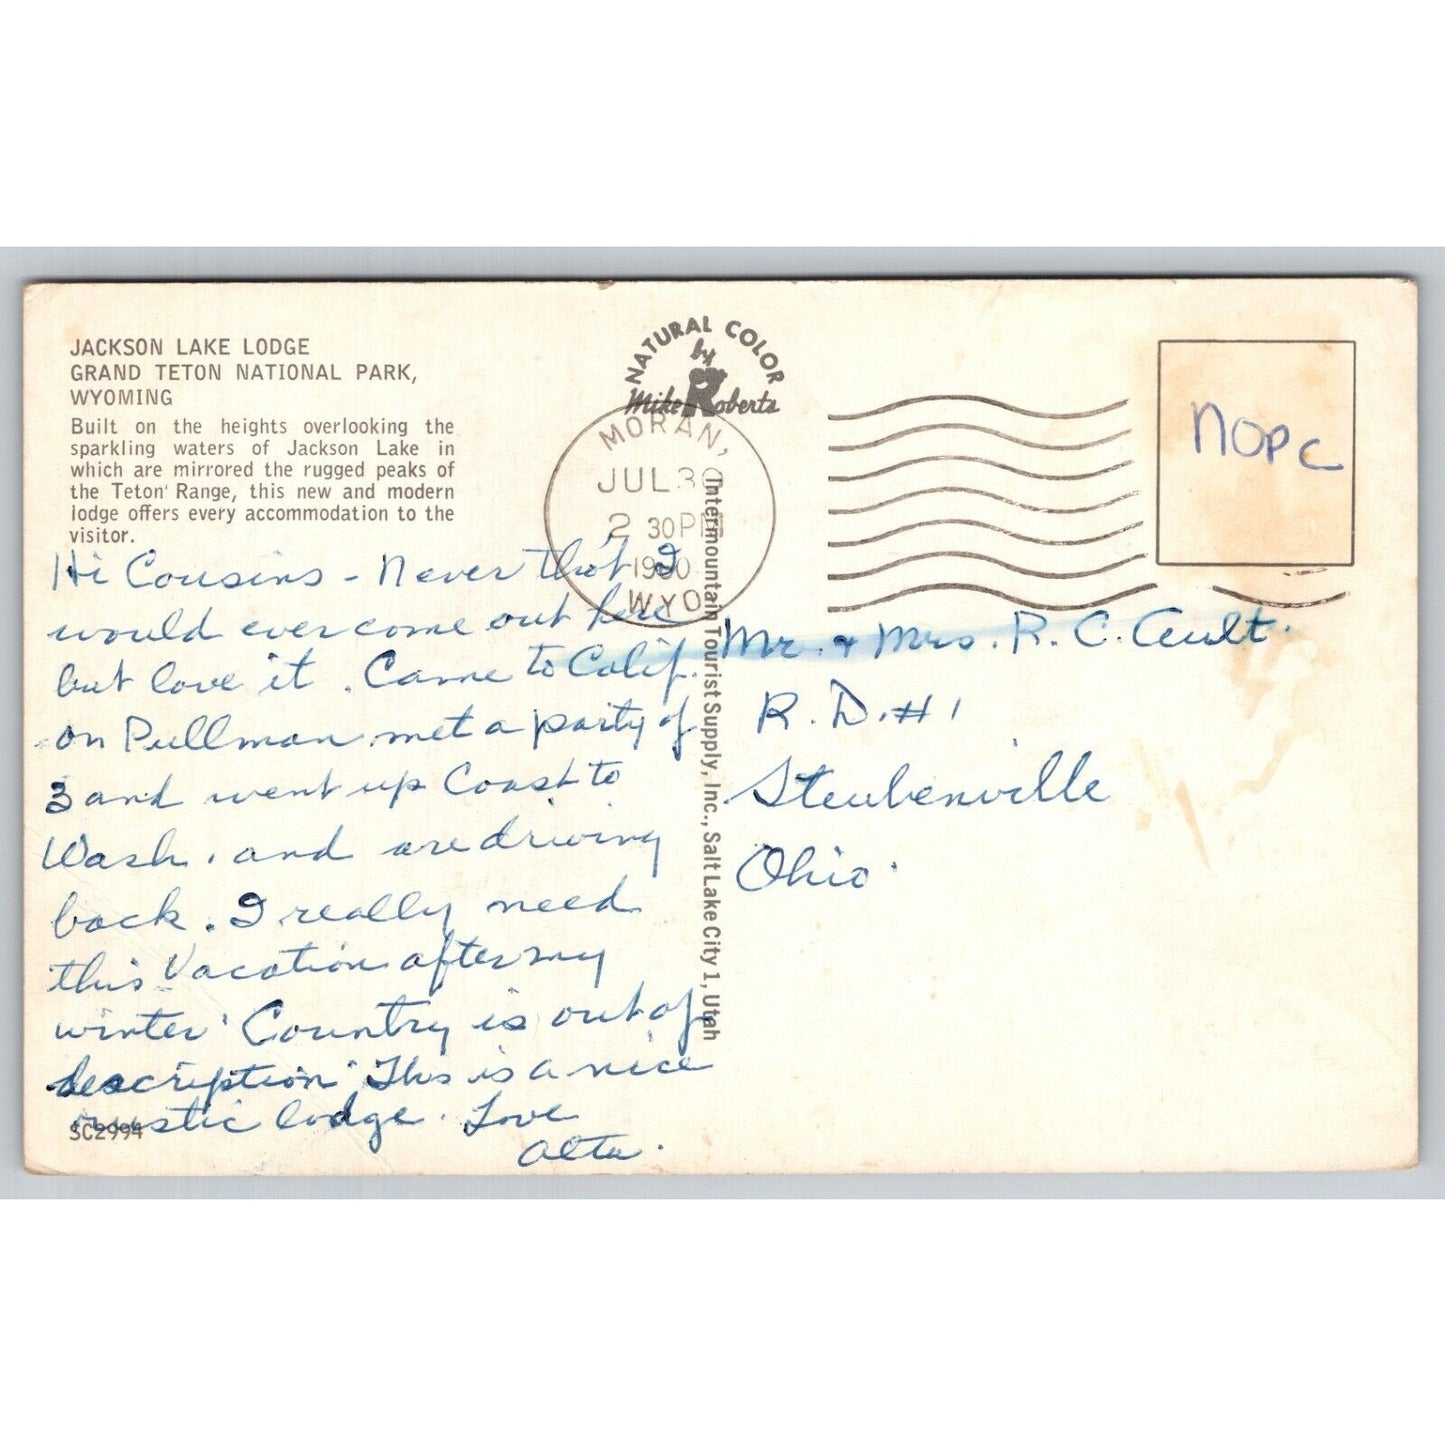 JACKSON LAKE LODGE
GRAND TETON NATIONAL PARK,
WYOMING
Built on the heights overlooking the
sparkling waters of Jackson Lake in
which are mirrored the rugged peaks of
the Teton Range, this new and modern
lodge offers every accommodation to the
visitor.
Hi Cousins - Never that I
would ever come out here
but love it. Came to Calif.
on Pullman met a party of
3 and went up Coast to
Wash. and are driving
back. I really need
this Vacation after my
winter. Country is out of
description. This is a nice
rustic lodge. Love
Alta.
SC2994
NATURAL COLOR
by
Mike Roberts
MORAN,
JUL 30
2 30PM
1960
WYO
Intermountain Tourist Supply, Inc., Salt Lake City 1, Utah
NOPC
Mr. & Mrs. R. C. Ault.
R. D. #1
Steubenville
Ohio.